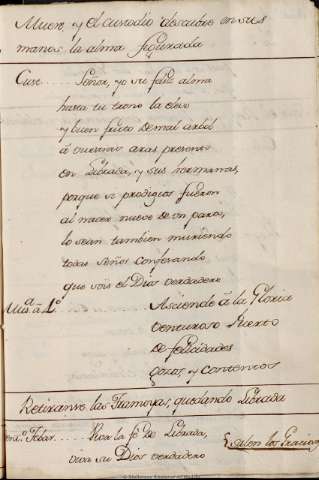 Muere, y el custodio descubre en sus
manos la alma figurada
Cust. Señor, yo su feliz alma
hasta tu trono la elevo
y buen fruto de mal arbol
â vuestras aras presento
en Librada, y sus hermanas,
porque si prodigios fueron
al nacer nueve de un parto,
lo sean tambien muriendo
todas Señor confesando
que sois el Dios verdadero
Mus.ª â 4º Asciende â la Gloria
venturoso Puerto
de felicidades
gozos, y contentos
Retiranse las Tramoyas, quedando Librada
Viva la fe de Librada,
viva su Dios verdadero
salen los Gracios